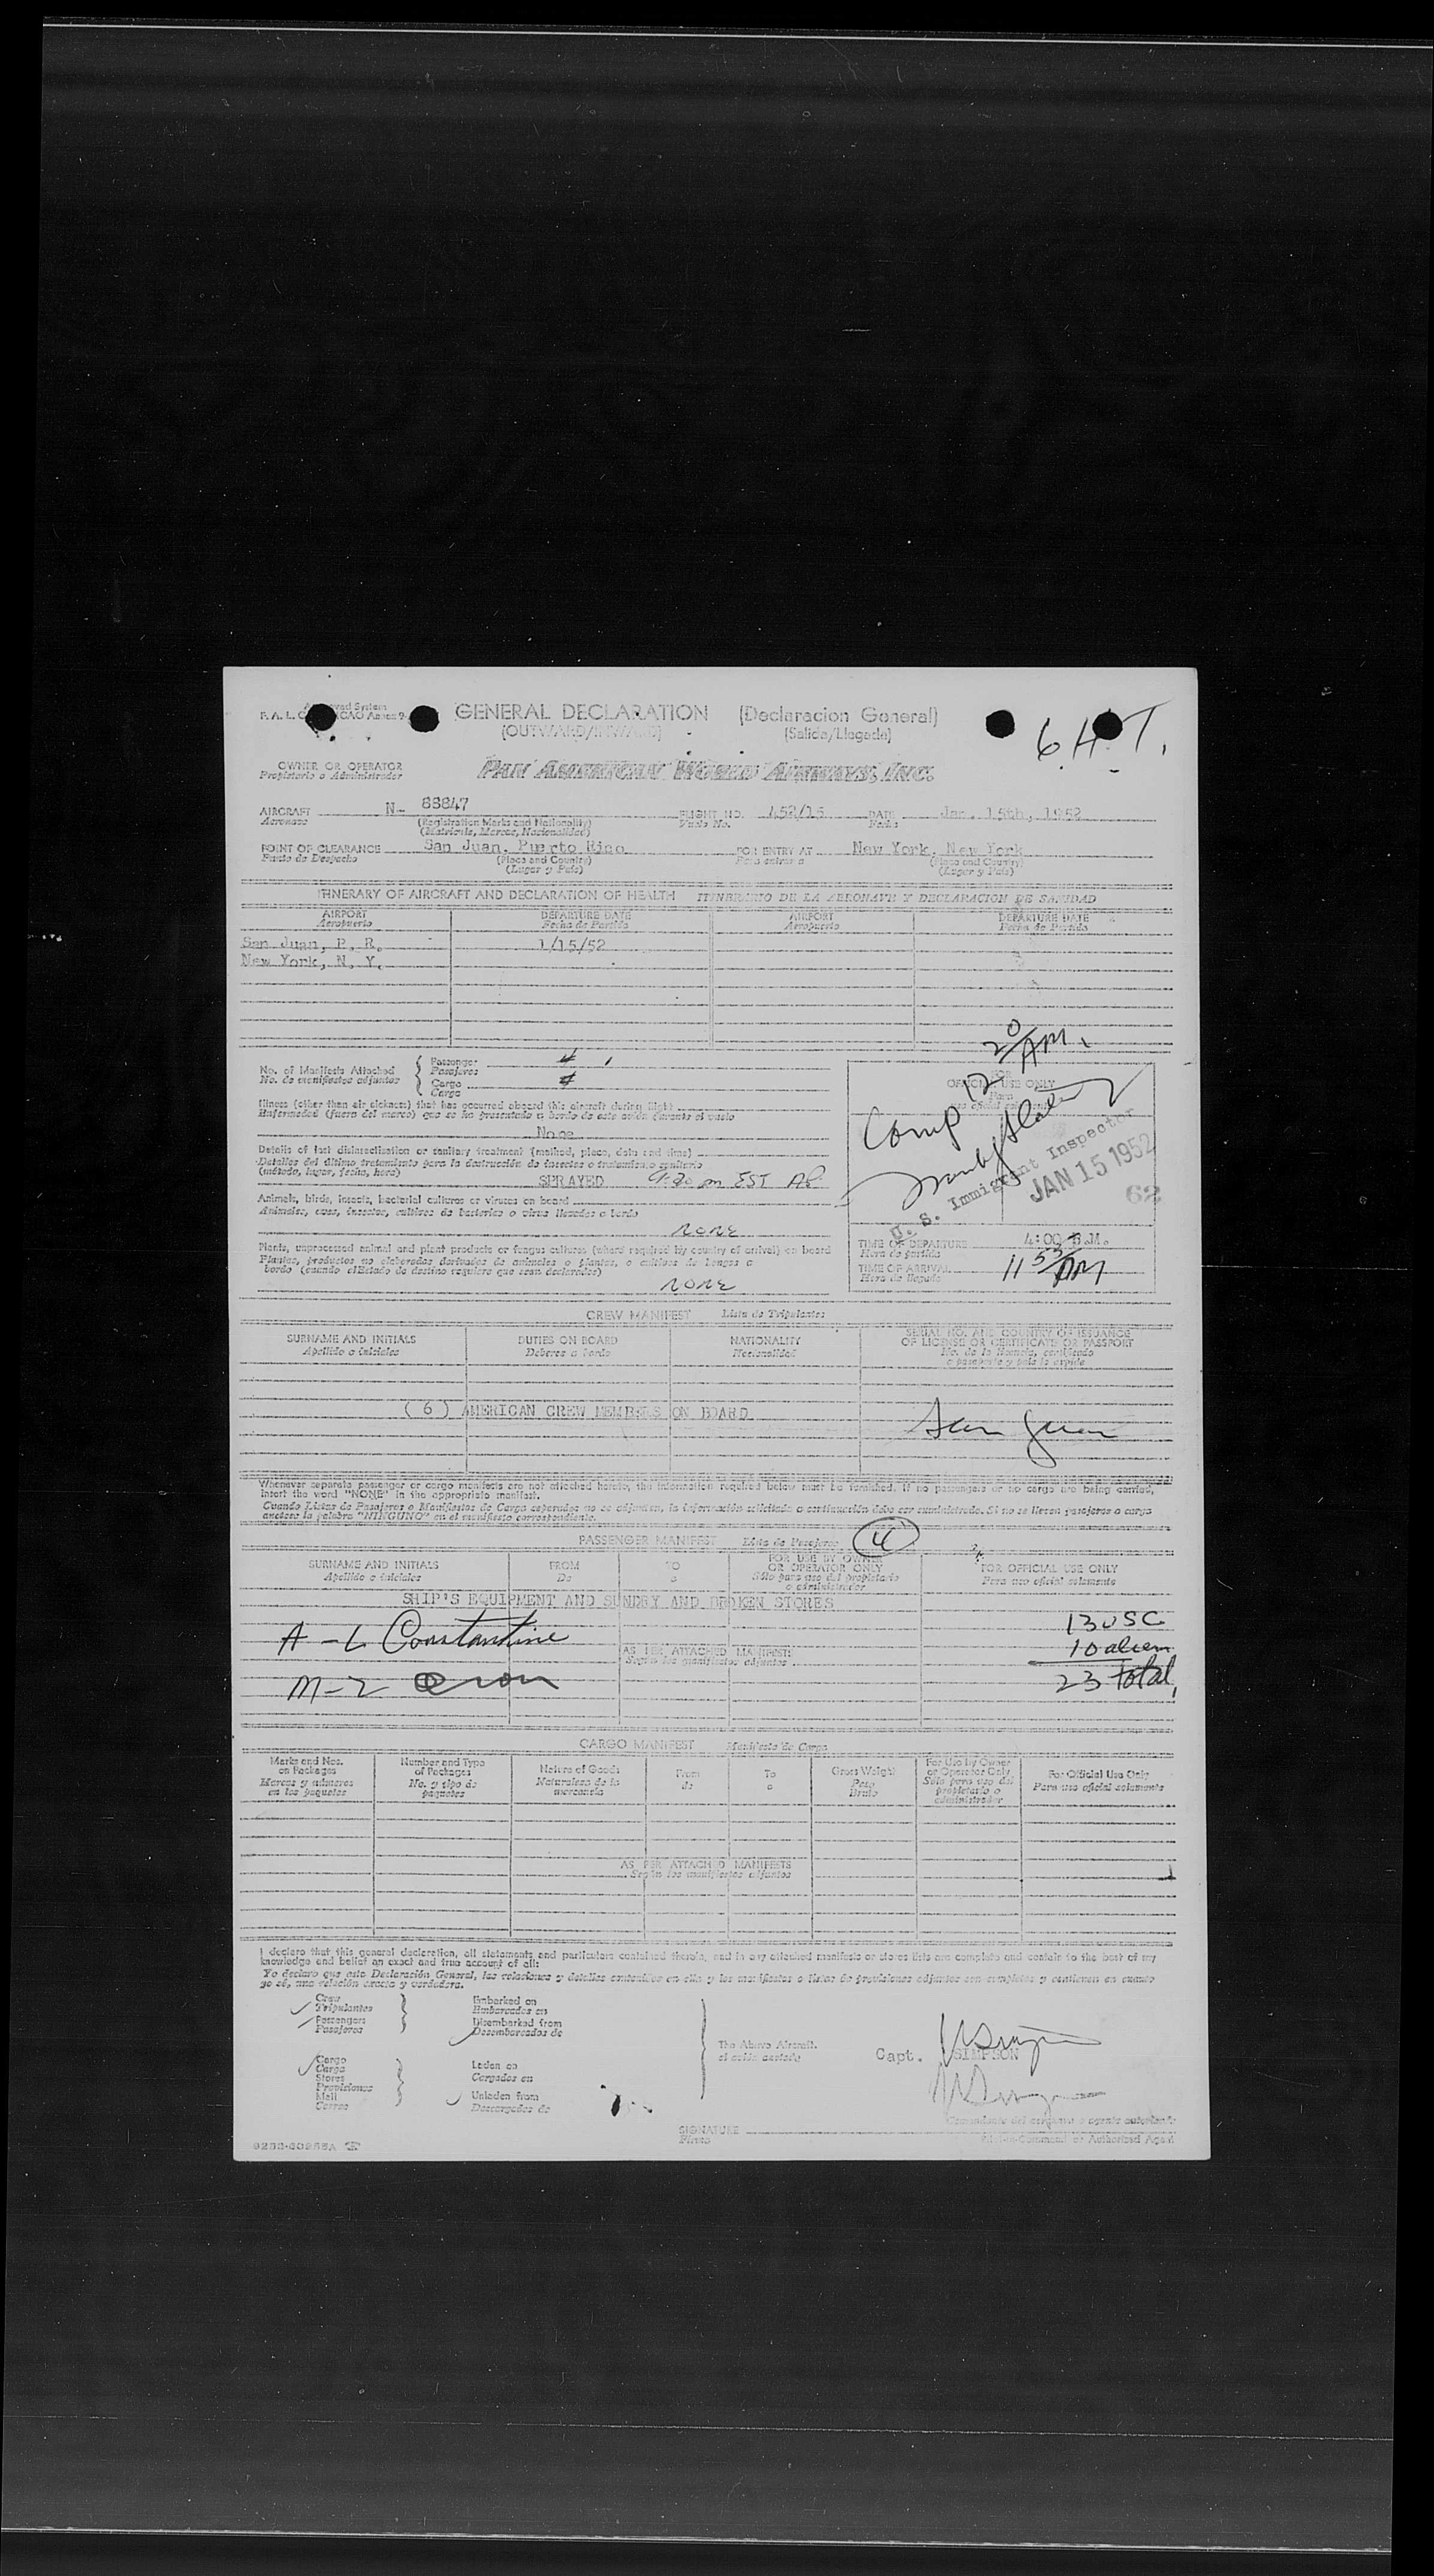 GENERAL DECLARATION (Declaracion General)
(OUTWARD/INWARD) (Salida/Llegada)
6 H.T.
OWNER OR OPERATOR
Propietario o Administrador
PAN AMERICAN WORLD AIRWAYS, INC.
AIRCRAFT N- 88847 FLIGHT NO. 452/15 DATE Jan. 15th, 1952
Aeronave (Registration Marks and Nationality) Vuelo No. Fecha
(Matricula, Marcas, Nacionalidad)
POINT OF CLEARANCE San Juan, Puerto Rico FOR ENTRY AT New York, New York
Punto de Despacho (Place and Country) Para entrar a (Place and Country)
(Lugar y País) (Lugar y País)
ITINERARY OF AIRCRAFT AND DECLARATION OF HEALTH ITINERARIO DE LA AERONAVE Y DECLARACION DE SANIDAD
AIRPORT DEPARTURE DATE AIRPORT DEPARTURE DATE
Aeropuerto Fecha de Partida Aeropuerto Fecha de Partida
San Juan, P. R. 1/15/52
New York, N. Y.
No. of Manifests Attached
No. de manifiestos adjuntos
Passenger 4
Pasajeros
Cargo
Carga
Illness (other than air sickness) that has occurred aboard this aircraft during flight
Enfermedad (fuera del mareo) que se ha presentado a bordo de este avión durante el vuelo
None
Details of last disinsectisation or sanitary treatment (method, place, date and time)
Detalles del último tratamiento para la destrucción de insectos o tratamiento sanitario
(método, lugar, fecha, hora)
SPRAYED 9:30 pm EST
Animals, birds, insects, bacterial cultures or viruses on board
Animales, aves, insectos, cultivos de bacterias o virus llevados a bordo
none
Plants, unprocessed animal and plant products or fungus cultures (where required by country of arrival) on board
Plantas, productos no elaborados derivados de animales o plantas, o cultivos de hongos a
bordo (cuando el Estado de destino requiere que sean declarados)
none
FOR
OFFICIAL USE ONLY
Para
uso oficial solamente
Comp 12 20 AM.
U. S. Immigrant Inspector
JAN 15 1952
62
TIME OF DEPARTURE 4:00 P.M.
Hora de partida
TIME OF ARRIVAL 11 53 PM
Hora de llegada
CREW MANIFEST Lista de Tripulantes
SURNAME AND INITIALS DUTIES ON BOARD NATIONALITY SERIAL NO. AND COUNTRY OF ISSUANCE
OF LICENSE OR CERTIFICATE OR PASSPORT
Apellido o iniciales Deberes a bordo Nacionalidad No. de la licencia, certificado
o pasaporte y país lo expide
( 6 ) AMERICAN CREW MEMBERS ON BOARD
San Juan
Whenever separate passenger or cargo manifests are not attached hereto, the information required below must be furnished. If no passengers or no cargo are being carried,
insert the word "NONE" in the appropriate manifest.
Cuando Listas de Pasajeros o Manifiestos de Carga separados no se adjunten, la información solicitada a continuación debe ser suministrada. Si no se llevan pasajeros o carga
anótese la palabra "NINGUNO" en el manifiesto correspondiente.
PASSENGER MANIFEST Lista de Pasajeros 4
SURNAME AND INITIALS FROM TO FOR USE BY OWNER
OR OPERATOR ONLY FOR OFFICIAL USE ONLY
Apellido o iniciales De a Sólo para uso del propietario
o administrador Para uso oficial solamente
SHIP'S EQUIPMENT AND SUNDRY AND BROKEN STORES
A - L Constantine
M - 2
AS PER ATTACHED MANIFEST:
Según los manifiestos adjuntos
13 USC
10 alien
23 total
CARGO MANIFEST Manifiesto de Carga
Marks and Nos.
on Packages
Marcas y números
en los paquetes
Number and Type
of Packages
No. y tipo de
paquetes
Nature of Goods
Naturaleza de la
mercancía
From
de
To
a
Gross Weight
Peso
Bruto
For Use by Owner
or Operator Only
Solo para uso del
propietario o
administrador
For Official Use Only
Para uso oficial solamente
AS PER ATTACHED MANIFESTS
Según los manifiestos adjuntos
I declare that this general declaration, all statements and particulars contained therein, and in any attached manifests or stores lists are complete and contain to the best of my
knowledge and belief an exact and true account of all:
Yo declaro que esta Declaración General, las relaciones y detalles contenidos en ella y los manifiestos o listas de provisiones adjuntos son completos y contienen en cuanto
yo sé, una relación exacta y verdadera.
Crew
Tripulantes
Passengers
Pasajeros
Embarked on
Embarcados en
Disembarked from
Desembarcados de
Cargo
Carga
Stores
Provisiones
Mail
Correo
Laden on
Cargados en
Unladen from
Descargados de
The Above Aircraft.
Capt. SIMPSON
SIGNATURE
Firma
Comandante del aeronave o agente autorizado
Pilot-in-Command or Authorized Agent